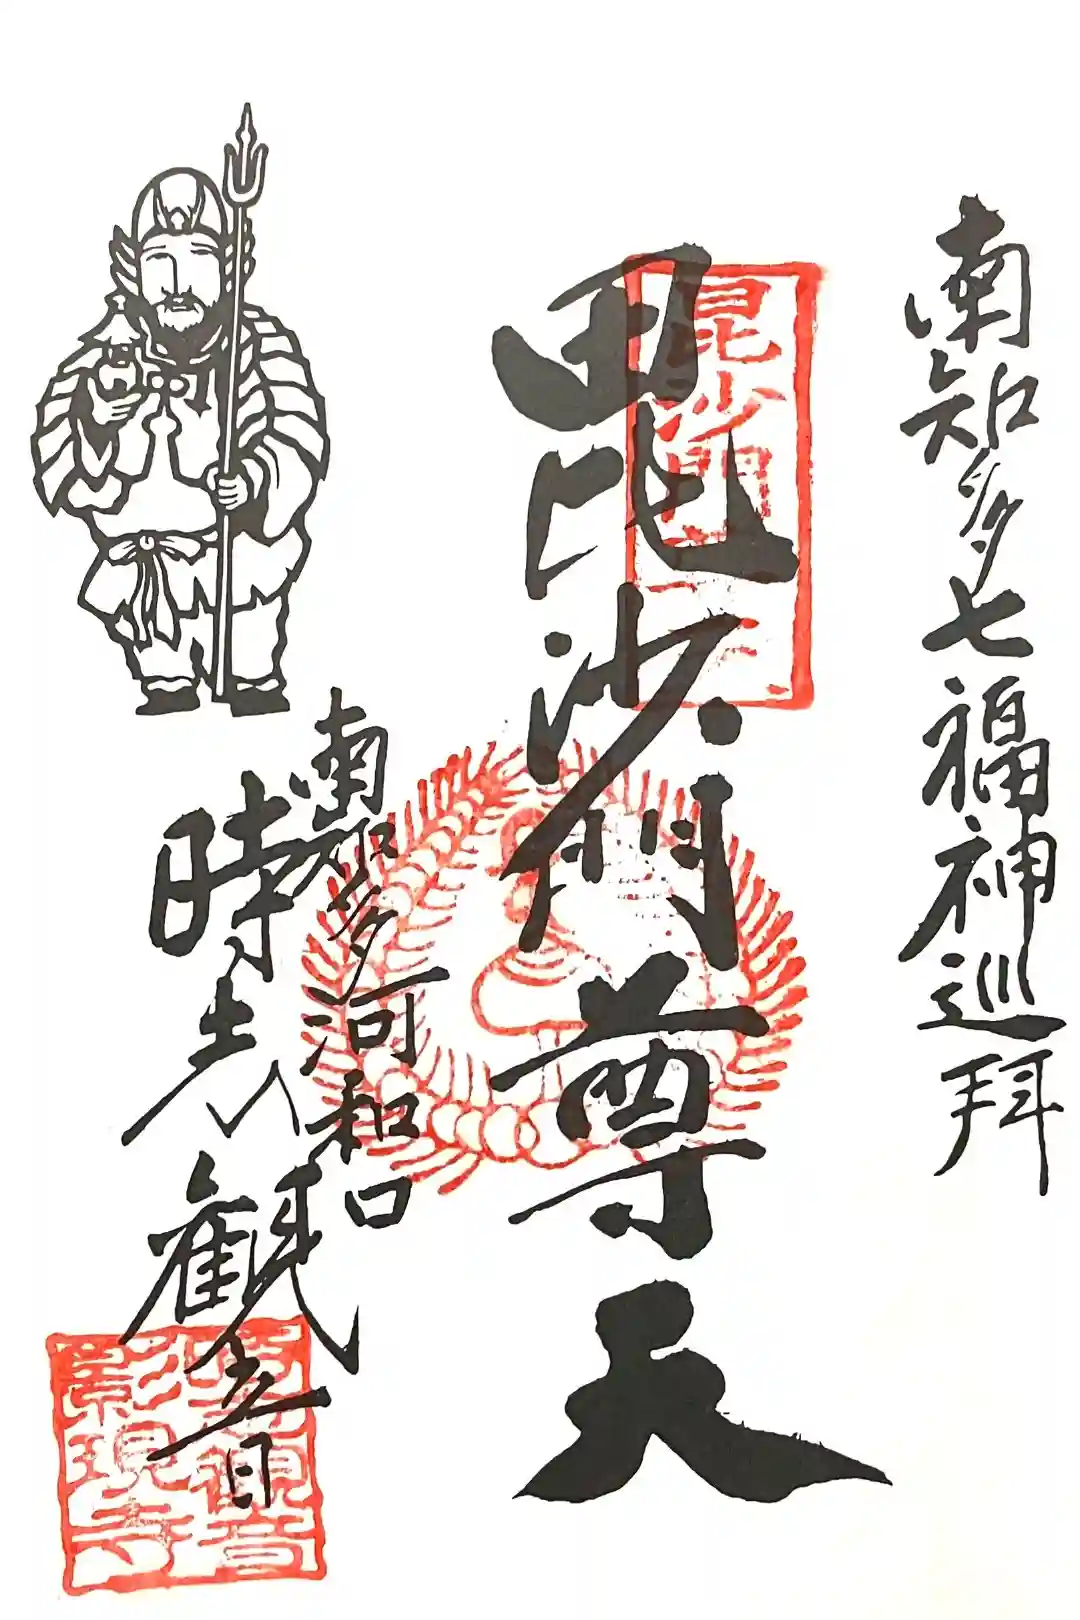 南知多七福神巡拝
毘沙門尊天
毘沙門
南知多河和口
時志観音
影現寺